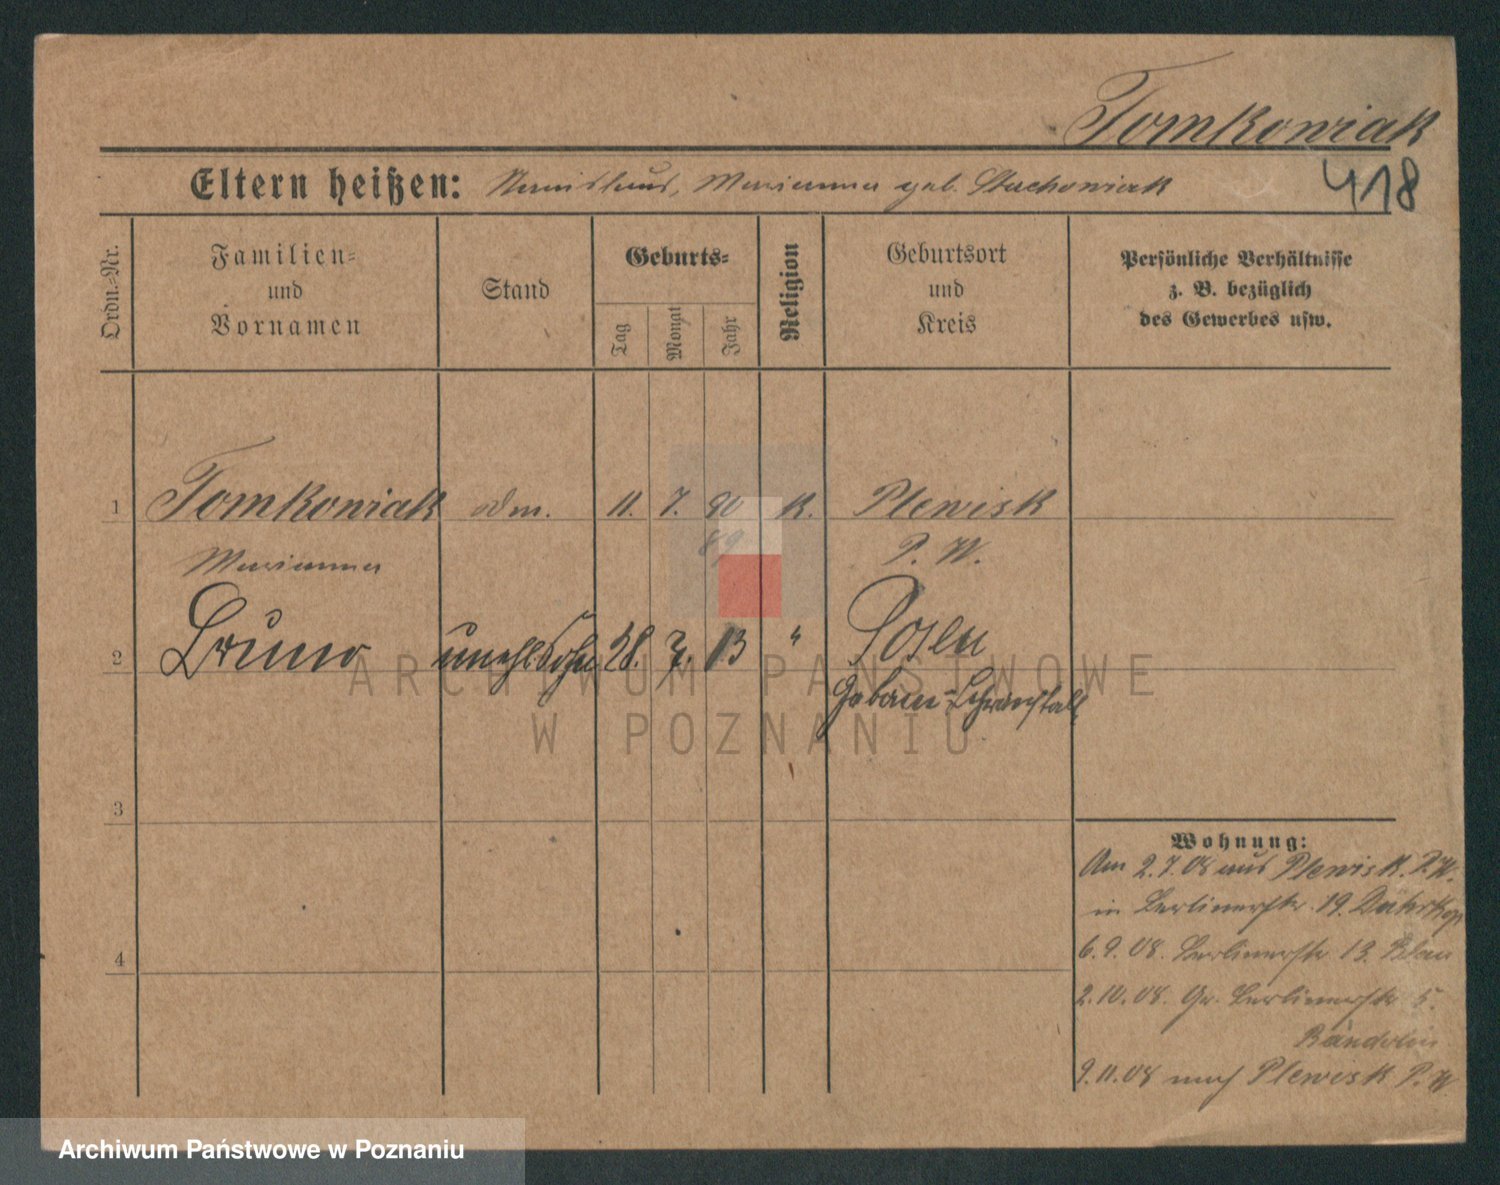 Tomkowiak
418
Eltern heißen: Stanislaus, Marianna geb. Stachowiak
Ordn.-Nr.
Familien= und Vornamen
Stand
Geburts=
Tag
Monat
Jahr
Religion
Geburtsort und Kreis
Persönliche Verhältnisse
z. B. bezüglich
des Gewerbes usw.
1 Tomkowiak 11. 7. 90 K. Plewisk
89
Marianna P. W.
2 Bruno unehl. Sohn 28. 7. 13 " Posen
Hebam-Lehranstalt
3
4
Wohnung:
Am 2.7.08 aus Plewisk. P.W.
in Berlinerstr. 19.
6.9.08. Berlinerstr 13. Blau
2.10.08. Gr. Berlinerstr 5.
9.11.08 nach Plewisk P.W
ARCHIWUM PAŃSTWOWE
W POZNANIU
Archiwum Państwowe w Poznaniu